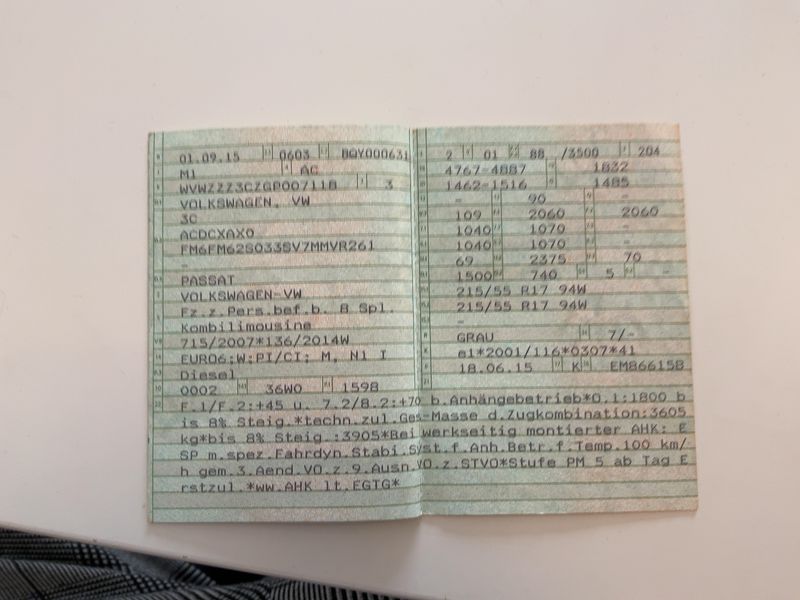 01.09.15 0603 BQY000631
M1 AC
WVWZZZ3CZGP007118 3
VOLKSWAGEN, VW
3C
ACDCXAX0
FM6FM62S033SV7MMVR261
-
PASSAT
VOLKSWAGEN-VW
Fz.z.Pers.bef.b. 8 Spl.
Kombilimousine
715/2007*136/2014W
EURO6;W:PI/CI; M, N1 I
Diesel
0002 36W0 1598
2 01 88 /3500 204
4767-4887 1832
1462-1516 1485
- 90 -
109 2060 2060
1040 1070 -
1040 1070 -
69 2375 70
1500 740 5 -
215/55 R17 94W
215/55 R17 94W
-
GRAU 7/-
e1*2001/116*0307*41
18.06.15 K EM866158
F.1/F.2:+45 u. 7.2/8.2:+70 b.Anhängebetrieb*O.1:1800 b
is 8% Steig.*techn.zul.Ges-Masse d.Zugkombination:3605
kg*bis 8% Steig.:3905*Bei werkseitig montierter AHK: E
SP m.spez.Fahrdyn.Stabi.Syst.f.Anh.Betr.f.Temp.100 km/
h gem.3.Aend.VO.z.9.Ausn.VO.z.STVO*Stufe PM 5 ab Tag E
rstzul.*ww.AHK lt.EGTG*